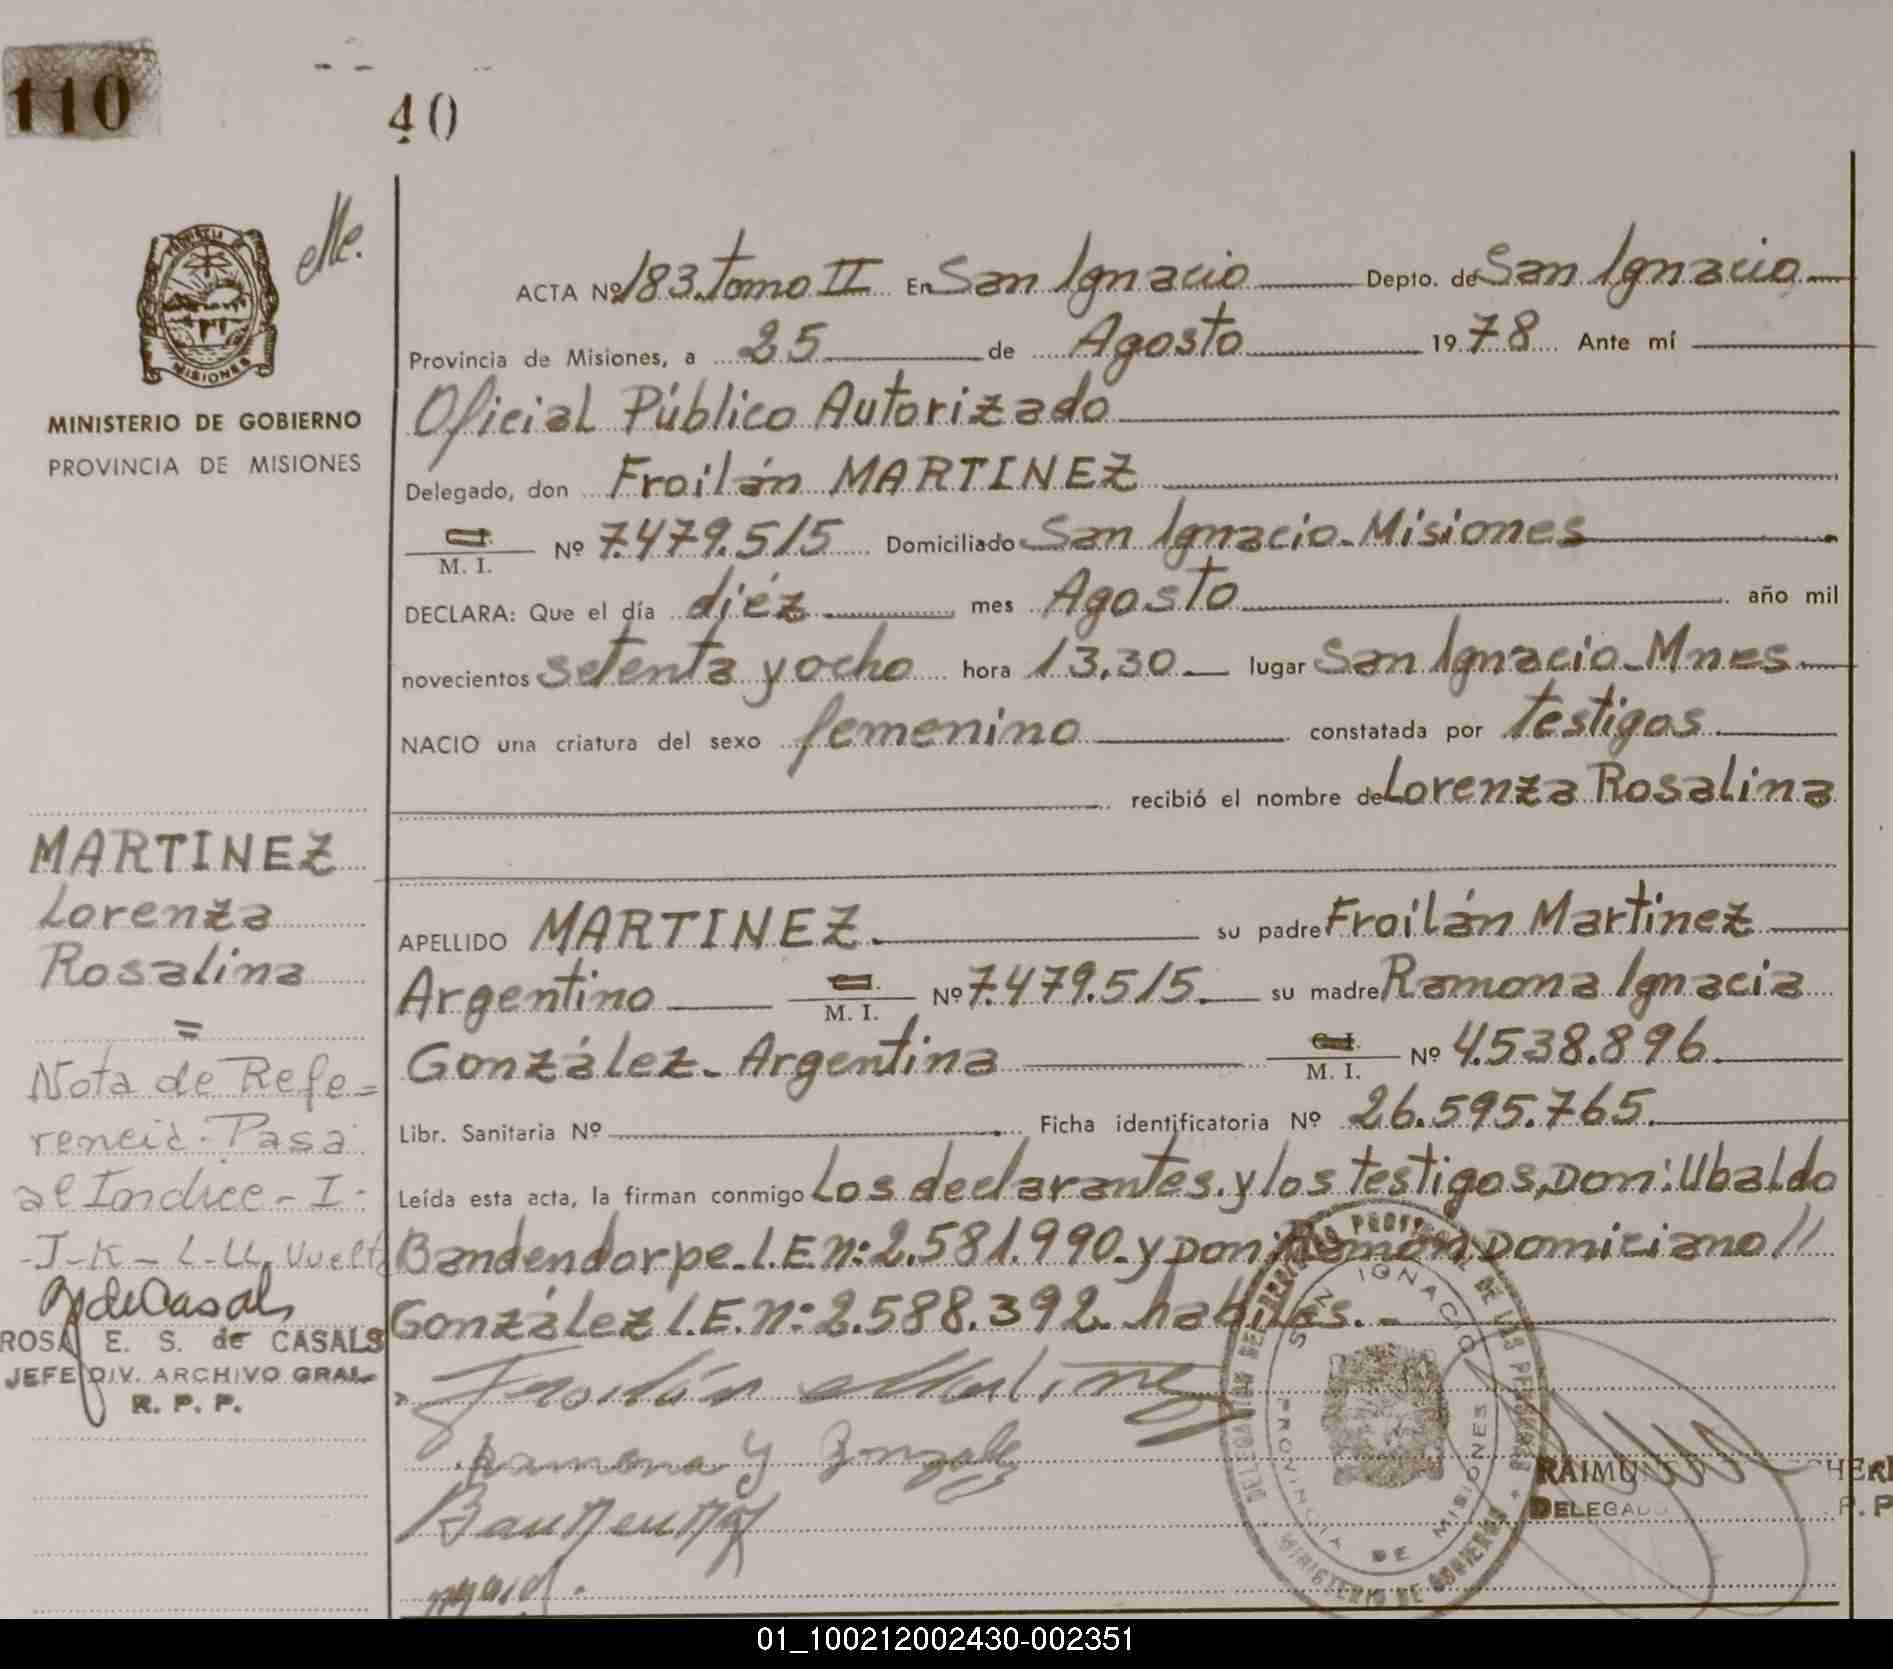 110
40
Me.
MISIONES
MINISTERIO DE GOBIERNO
PROVINCIA DE MISIONES
ACTA Nº 183. Tomo II En San Ignacio Depto. de San Ignacio
Provincia de Misiones, a 25 de Agosto 1978 Ante mí
Oficial Público Autorizado
Delegado, don Froilán MARTINEZ
M. I. Nº 7.479.515 Domiciliado San Ignacio-Misiones
DECLARA: Que el día diéz mes Agosto año mil
novecientos setenta y ocho hora 13.30 lugar San Ignacio-Mnes
NACIO una criatura del sexo femenino constatada por testigos
recibió el nombre de Lorenza Rosalina
APELLIDO MARTINEZ. su padre Froilán Martinez
Argentino C.I. M. I. Nº 7.479.515. su madre Ramona Ignacia
González-Argentina C.I. M. I. Nº 4.538.896.
Libr. Sanitaria Nº Ficha identificatoria Nº 26.595.765.
Leída esta acta, la firman conmigo Los declarantes. y los testigos, Don: Ubaldo
Bandendorpe-L.E.n: 2.581.990-y Don: Ramón Domiciano //
González L.E.n: 2.588.392. habiles.-
MARTINEZ
Lorenza
Rosalina
=
Nota de Refe=
rencia: Pasa
al Indice - I:
-J-K-L-LL Vuelta
RdeCasals
ROSA E. S. de CASALS
JEFE DIV. ARCHIVO GRAL
R. P. P.
Froilán Martinez
Ramona Y Gonzale
DELEGACION DEL REGISTRO PROVINCIAL DE LAS PERSONAS
SAN IGNACIO
PROVINCIA DE MISIONES
MINISTERIO DE GOBIERNO
DELEGADO
01_100212002430-002351